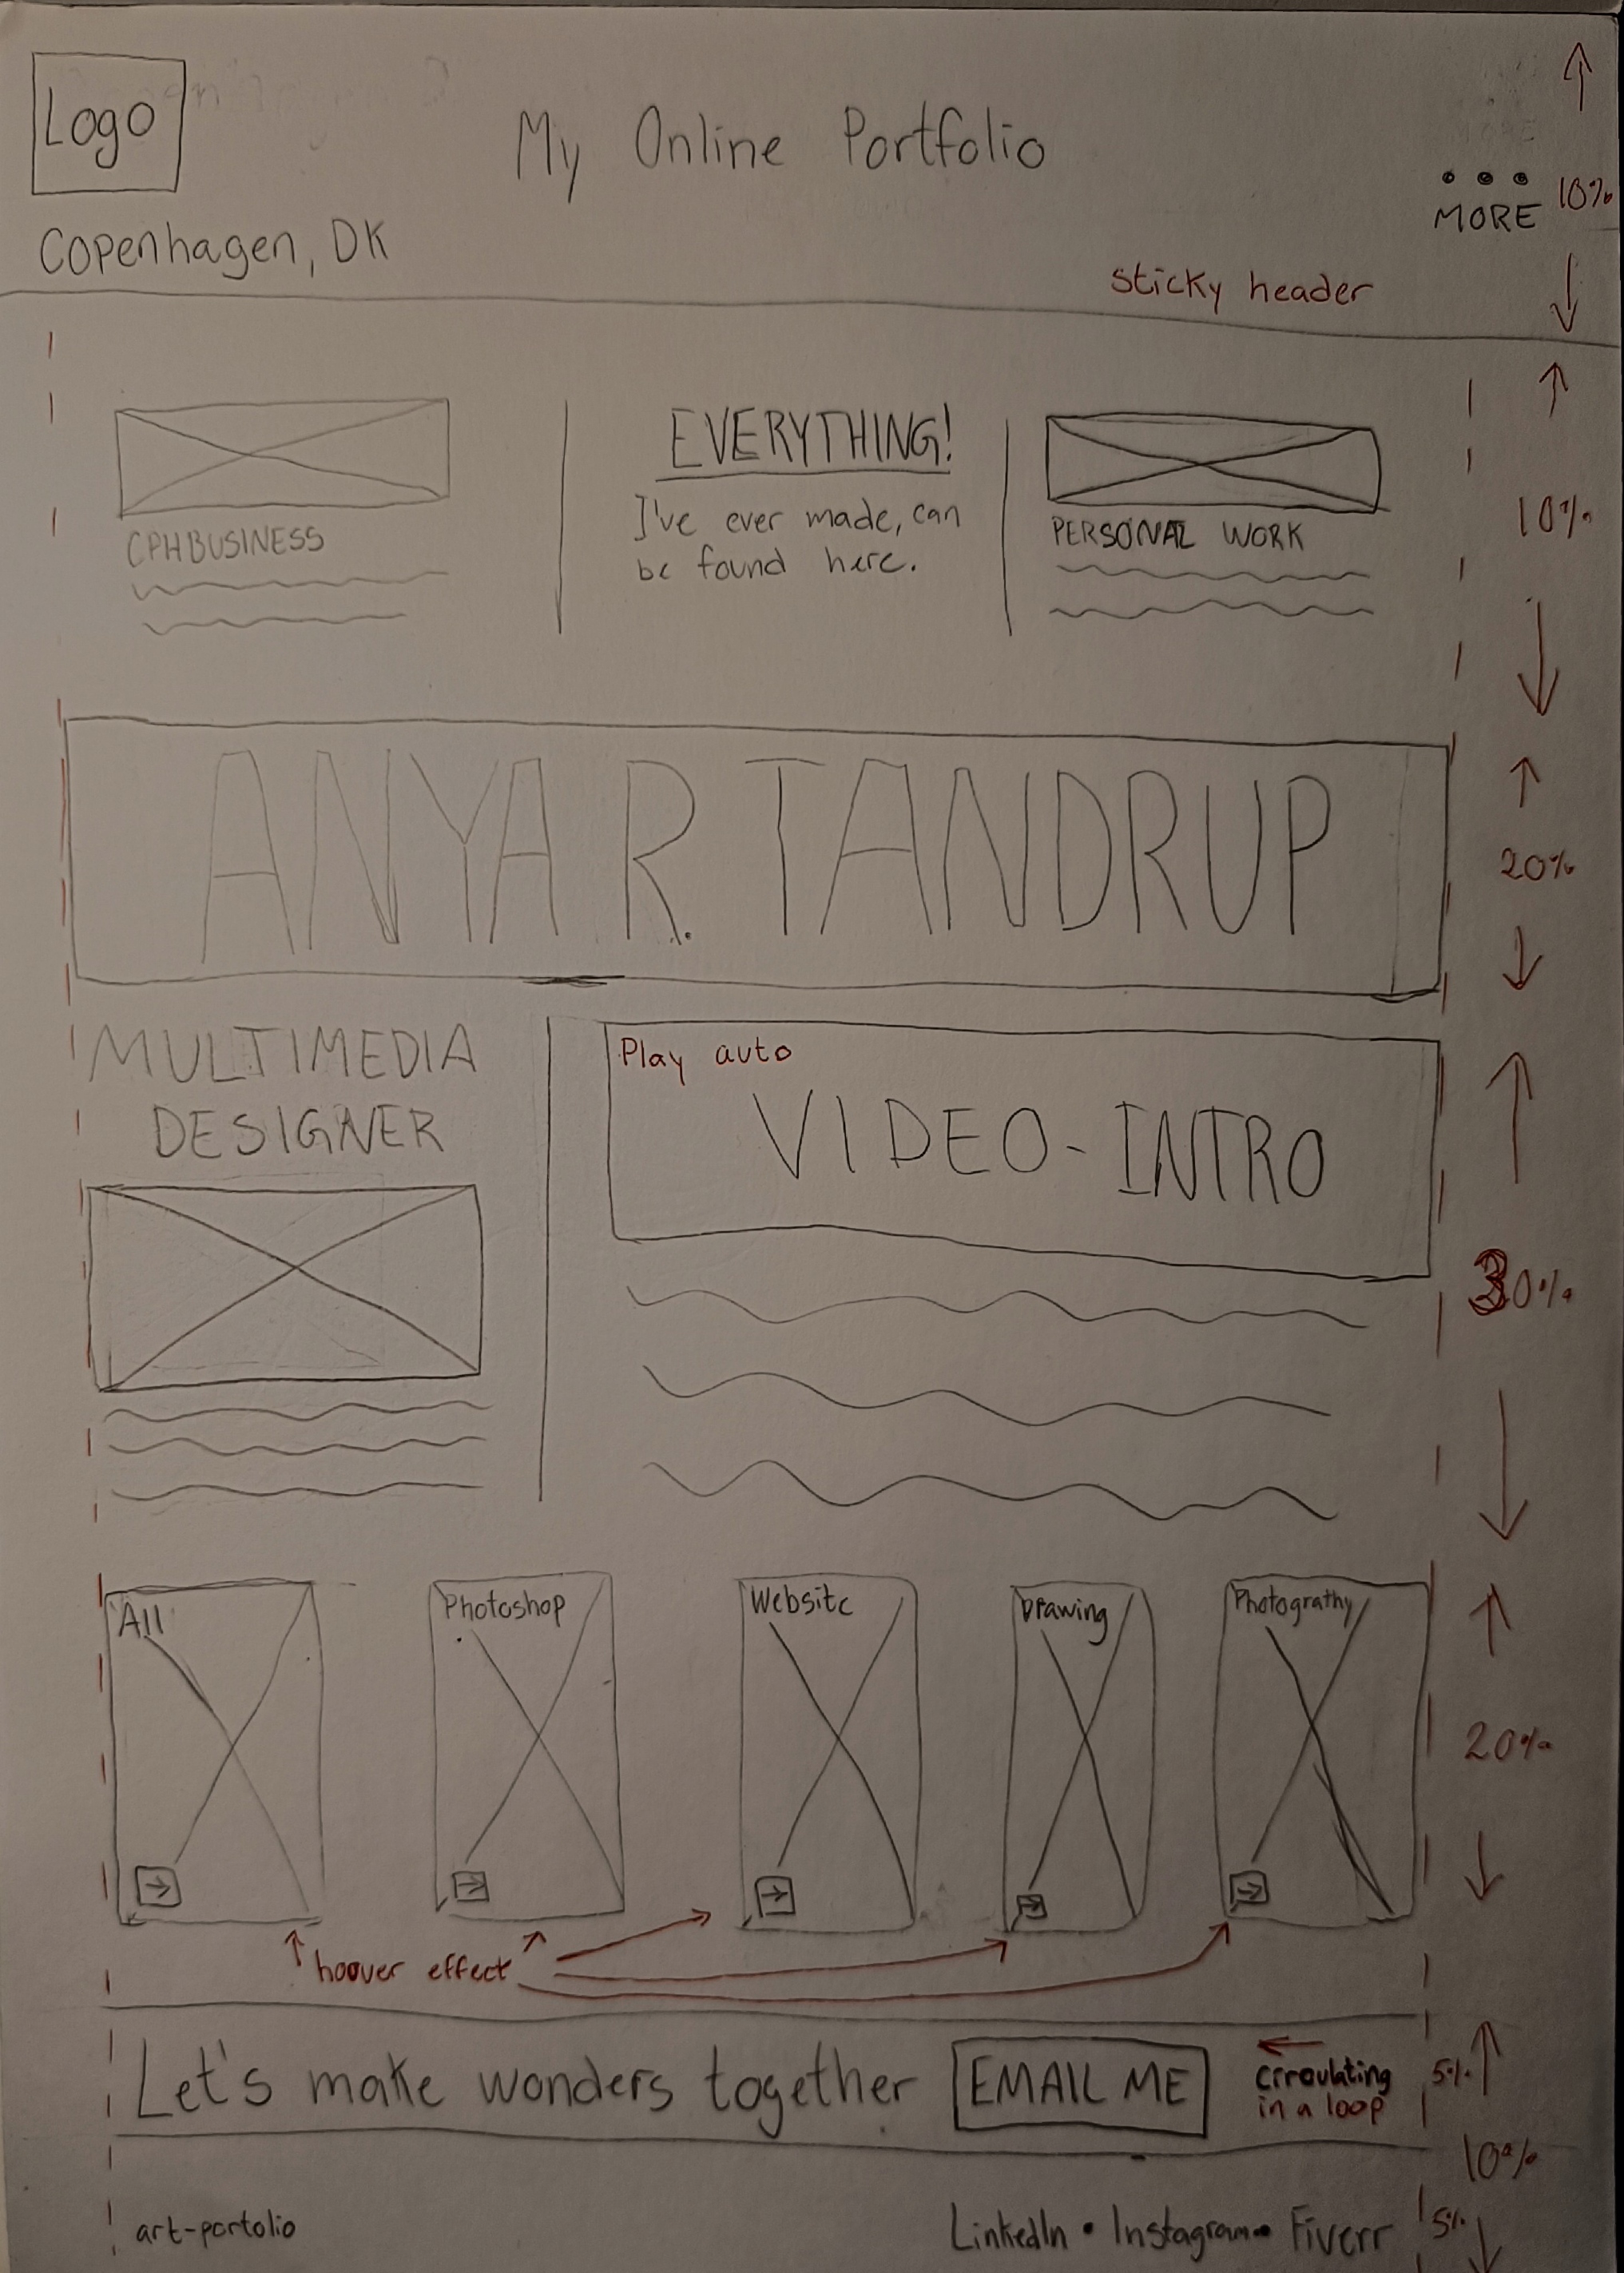 Logo
My Online Portfolio
MORE
10%
Copenhagen, DK
sticky header
CPHBUSINESS
EVERYTHING!
I've ever made, can
be found here.
PERSONAL WORK
10%
ANYA R. TANDRUP
20%
MULTIMEDIA
DESIGNER
Play auto
VIDEO-INTRO
30%
All
Photoshop
Website
Drawing
Photograthy
20%
hoover effect
Let's make wonders together
EMAIL ME
circulating
in a loop
5%
10%
art-portolio
LinkedIn • Instagram • Fiverr
5%